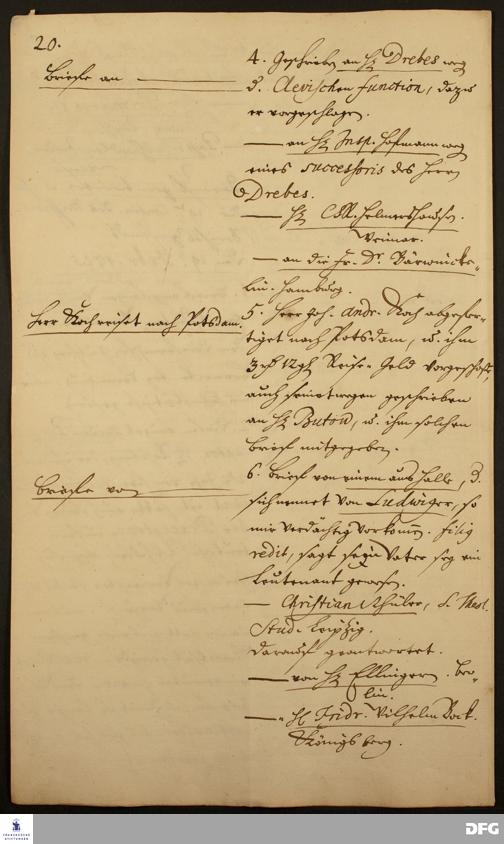 20.
Briefe an
4. Geschrieben an H. Drebes weg
d. Clevischen function, dazu
er vorgeschlagen.
— an H. Insp. Hofmann weg
eines successoris des Herrn
Drebes.
— H. Helmershausen.
Weimar.
— an die Fr. Dr. Bärwinicke-
lin. Hamburg.
Herr Koch reiset nach Potsdam.
5. Herr Joh. Andr. Koch abgefer-
tiget nach Potsdam, u. ihm
3 12 Reise-Geld vorgeschoß,
auch seinetwegen geschrieben
an H. Butow, u. ihm solchen
Brief mitgegeben.
Briefe von
6. Brief von einem aus Halle, d.
sich nennet von Ludwiger, so
mir verdächtig vorkomm.
redit, sagt sein Vater sey ein
Leutenant gewesen.
— Christian Schüler, S. Theol.
Stud. Leipzig.
darauf geantwortet.
— von H. Ellinger. Ber-
lin.
— H. Fridr. Wilhelm Bock.
Königsberg.
FRANCKESCHE
STIFTUNGEN
DFG